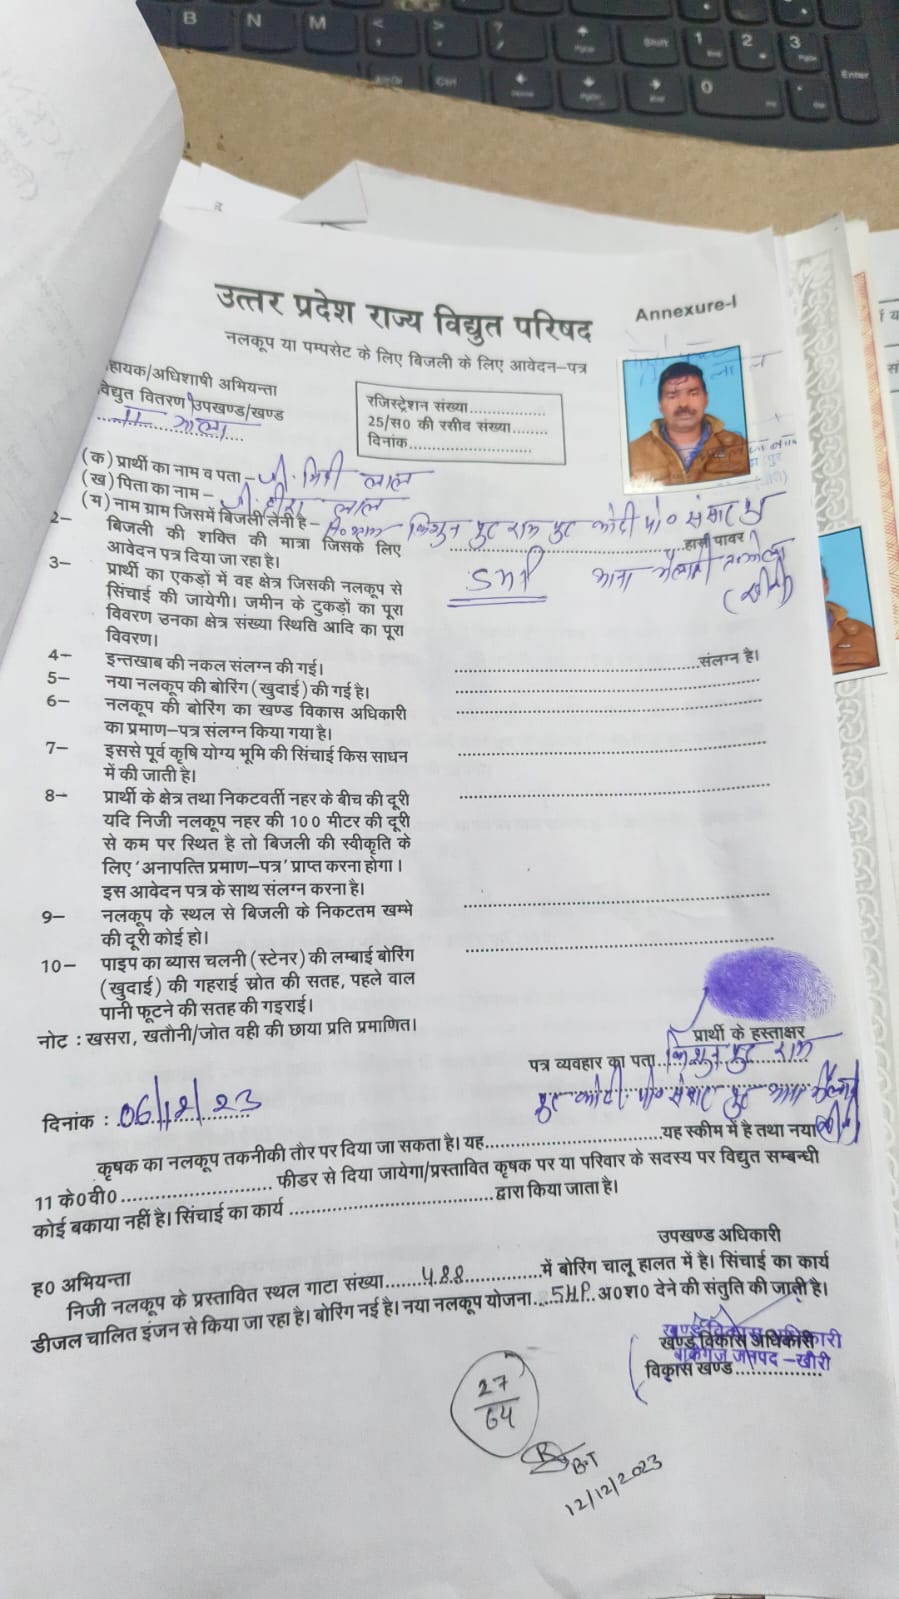 B N M < > ? Shift 1 2 3
Ctrl 0 Enter
उत्तर प्रदेश राज्य विद्युत परिषद
Annexure-I
नलकूप या पम्पसेट के लिए बिजली के लिए आवेदन-पत्र
हायक/अधिशाषी अभियन्ता
विद्युत वितरण उपखण्ड/खण्ड
गोला
रजिस्ट्रेशन संख्या................
25/स0 की रसीद संख्या........
दिनांक..........................
(क) प्रार्थी का नाम व पता - श्री. मिश्री लाल
(ख) पिता का नाम - श्री. हीरा लाल
(म) नाम ग्राम जिसमें बिजली लेनी है - कोटी पो०
2- बिजली की शक्ति की मात्रा जिसके लिए
आवेदन पत्र दिया जा रहा है। ........हार्स पावर
3- प्रार्थी का एकड़ों में वह क्षेत्र जिसकी नलकूप से
सिंचाई की जायेगी। जमीन के टुकड़ों का पूरा
विवरण उनका क्षेत्र संख्या स्थिति आदि का पूरा
विवरण।
(खीरी)
4- इन्तखाब की नकल संलग्न की गई। ........संलग्न है।
5- नया नलकूप की बोरिंग (खुदाई) की गई है।
6- नलकूप की बोरिंग का खण्ड विकास अधिकारी
का प्रमाण-पत्र संलग्न किया गया है।
7- इससे पूर्व कृषि योग्य भूमि की सिंचाई किस साधन
में की जाती है।
8- प्रार्थी के क्षेत्र तथा निकटवर्ती नहर के बीच की दूरी
यदि निजी नलकूप नहर की 100 मीटर की दूरी
से कम पर स्थित है तो बिजली की स्वीकृति के
लिए 'अनापत्ति प्रमाण-पत्र' प्राप्त करना होगा।
इस आवेदन पत्र के साथ संलग्न करना है।
9- नलकूप के स्थल से बिजली के निकटतम खम्भे
की दूरी कोई हो।
10- पाइप का ब्यास चलनी (स्टेनर) की लम्बाई बोरिंग
(खुदाई) की गहराई स्रोत की सतह, पहले वाल
पानी फूटने की सतह की गइराई।
नोट : खसरा, खतौनी/जोत वही की छाया प्रति प्रमाणित।
प्रार्थी के हस्ताक्षर
पत्र व्यवहार का पता
कोटी पो०
दिनांक : 06/12/23
कृषक का नलकूप तकनीकी तौर पर दिया जा सकता है। यह................यह स्कीम में है तथा नया
11 के0वी0 ................ फीडर से दिया जायेगा/प्रस्तावित कृषक पर या परिवार के सदस्य पर विद्युत सम्बन्धी
कोई बकाया नहीं है। सिंचाई का कार्य ................द्वारा किया जाता है।
उपखण्ड अधिकारी
ह0 अभियन्ता
निजी नलकूप के प्रस्तावित स्थल गाटा संख्या.......488.......में बोरिंग चालू हालत में है। सिंचाई का कार्य
डीजल चालित इंजन से किया जा रहा है। बोरिंग नई है। नया नलकूप योजना....5HP..अ0श0 देने की संतुति की जाती है।
खण्ड विकास अधिकारी
खण्ड विकास अधिकारी
बांकेगंज जनपद -खीरी
विकास खण्ड................
27
64
12/12/2023